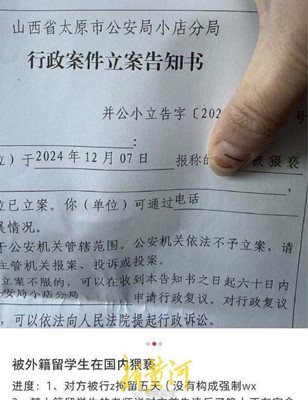 山西省太原市公安局小店分局
行政案件立案告知书
并公小立告字〔202 号
位）于2024年12月07日 报称的 被猥亵
位已立案。你（单位）可通过电话
展情况。
于公安机关管辖范围。公安机关依法不予立案，请
主管机关报案、投诉或投案。
立案不服的，可以在收到本告知书之日起六十日内
公安局小店分局 申请行政复议。对行政复
，可以依法向人民法院提起行政诉讼。
被外籍留学生在国内猥亵
新黄河
进度：1、对方被行z拘留五天（没有构成强制wx